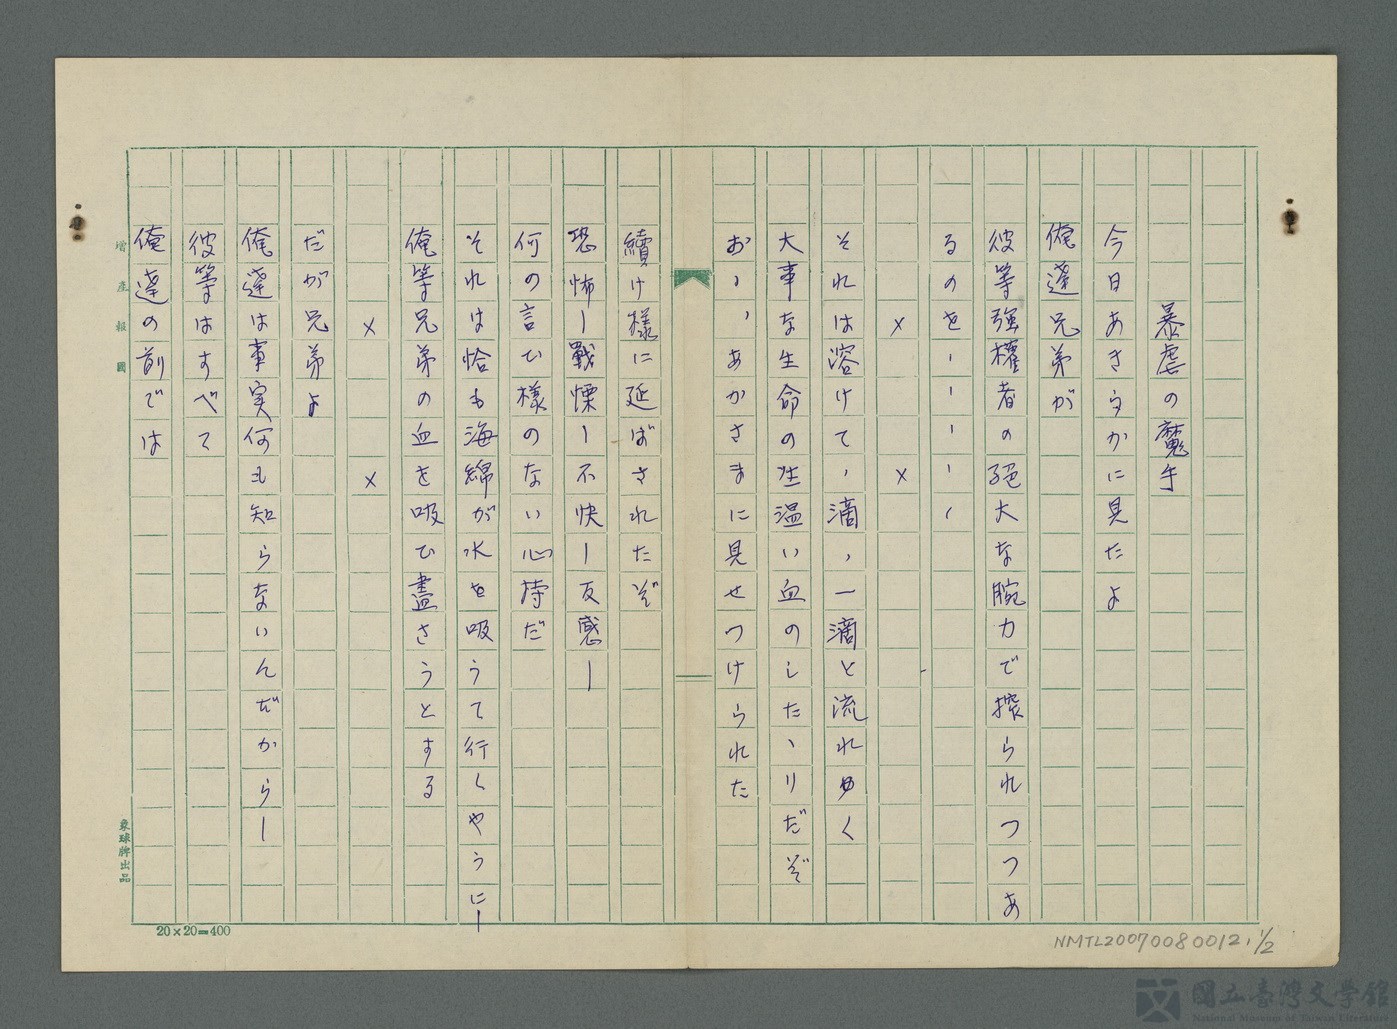 暴虐の魔手
今日あきらかに見たよ
俺達兄弟が
彼等強權者の絕大な腕力で搾られつつあ
るのを－－－－－
× ×
それは溶けて、滴、一滴と流れゆく
大事な生命の生温い血のしたゝりだぞ
おゝ、あかさまに見せつけられた
續け樣に延ばされたぞ
恐怖ー戰慄ー不快ー反感ー
何の言ひ樣のない心持だ
それは恰も海綿が水を吸うて行くやうにー
俺等兄弟の血を吸ひ盡さうとする
× ×
だが兄弟よ
俺達は事実何も知らないんだからー
彼等はすべて
俺達の前では
增產報國
象球牌出品
20×20=400
NMTL20070080012, 1/2
國立臺灣文學館
National Museum of Taiwan Literature